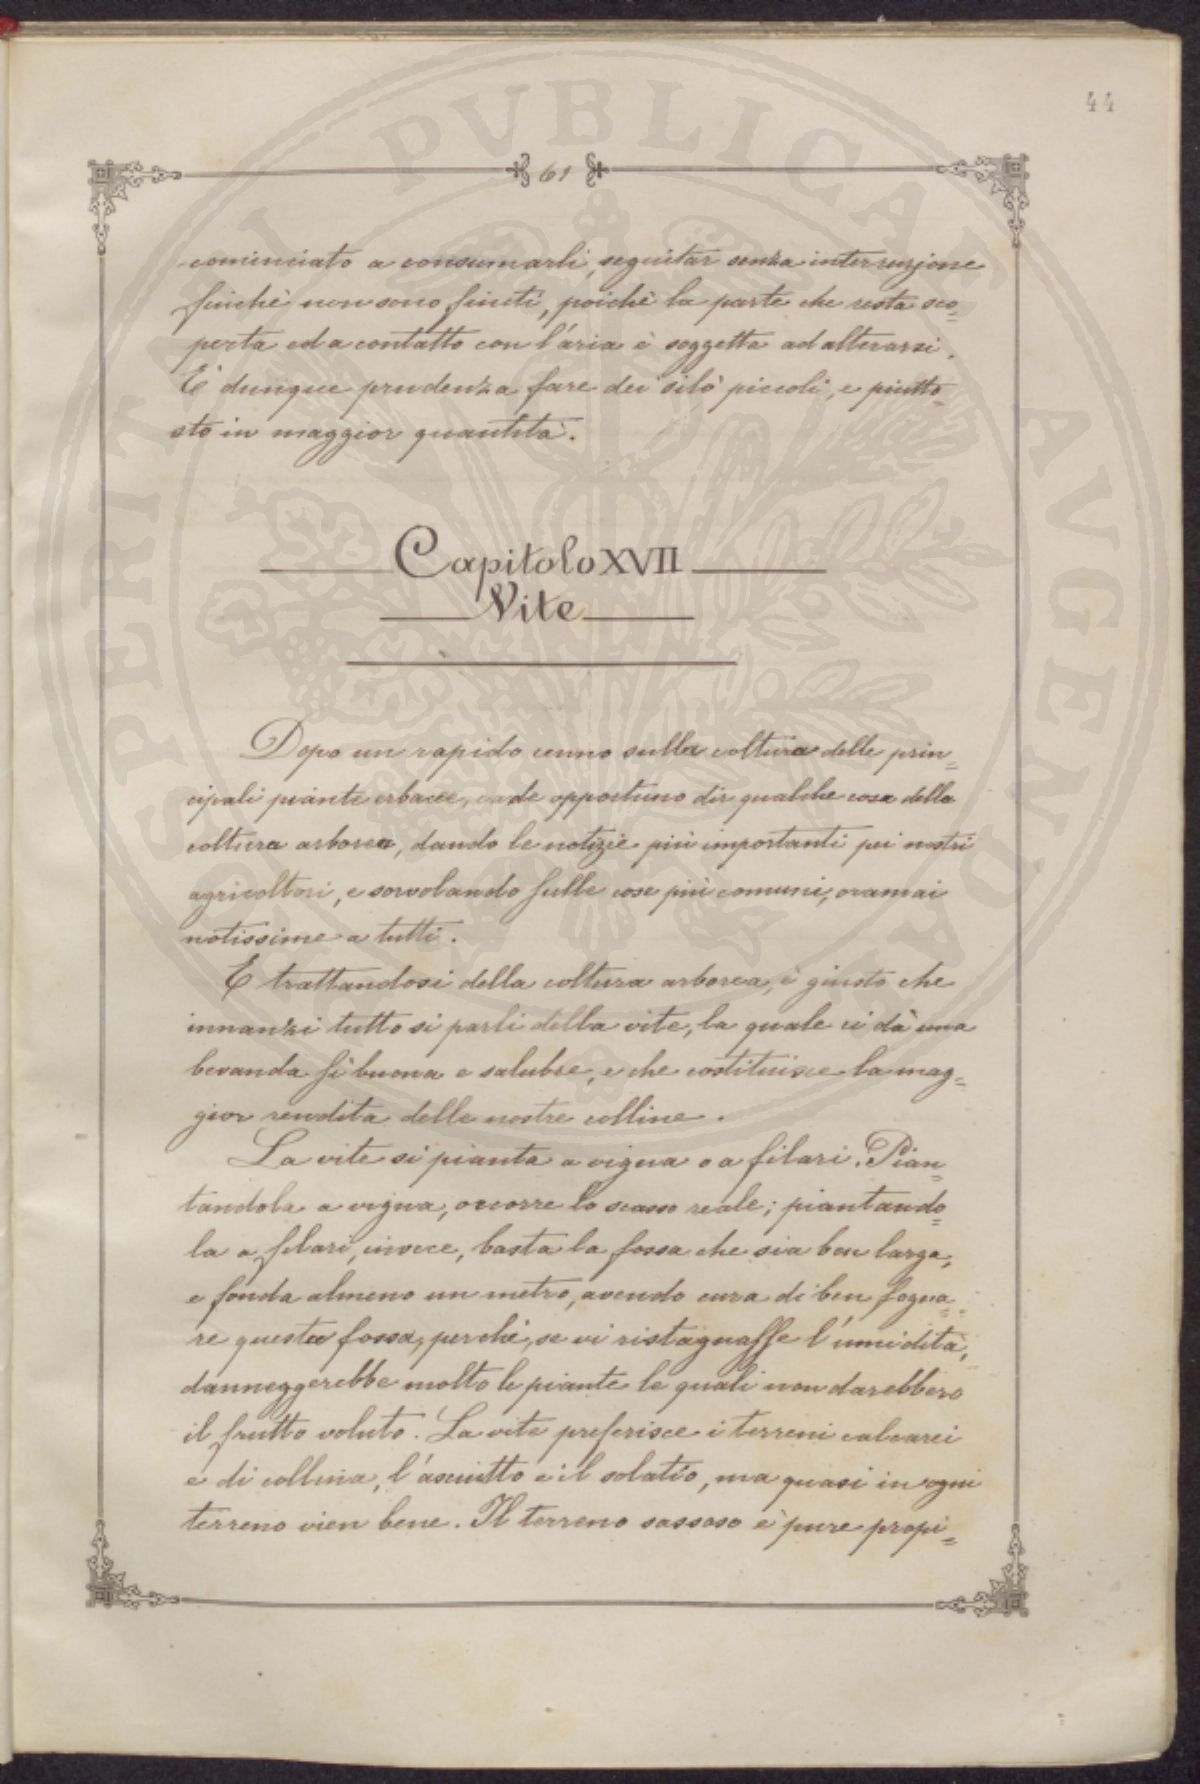 44
61
cominciato a consumarli, seguitar senza interruzione
finchè non sono finiti, poichè la parte che resta sco=
perta ed a contatto con l'aria è soggetta ad alterarsi.
E' dunque prudenza fare dei silò piccoli, e piutto=
sto in maggior quantità.
Capitolo XVII
Vite
Dopo un rapido cenno sulla coltura delle prin=
cipali piante erbacee, cade opportuno dir qualche cosa della
coltura arborea, dando le notizie più importanti pei nostri
agricoltori, e sorvolando sulle cose più comuni, oramai
notissime a tutti.
E trattandosi della coltura arborea, è giusto che
innanzi tutto si parli della vite, la quale ci dà una
bevanda sì buona e salubre, e che costituisce la mag=
gior rendita delle nostre colline.
La vite si pianta a vigna o a filari. Pian=
tandola a vigna, occorre lo scasso reale; piantando=
la a filari, invece, basta la fossa che sia ben larga,
e fonda almeno un metro, avendo cura di ben fogna=
re questa fossa, perchè, se vi ristagnasse l'umidità,
danneggerebbe molto le piante le quali non darebbero
il frutto voluto. La vite preferisce i terreni calcarei
e di collina, l'asciutto e il solatìo, ma quasi in ogni
terreno vien bene. Il terreno sassoso è pure propi=
SPERITAL PUBLICAE AVGENDAE